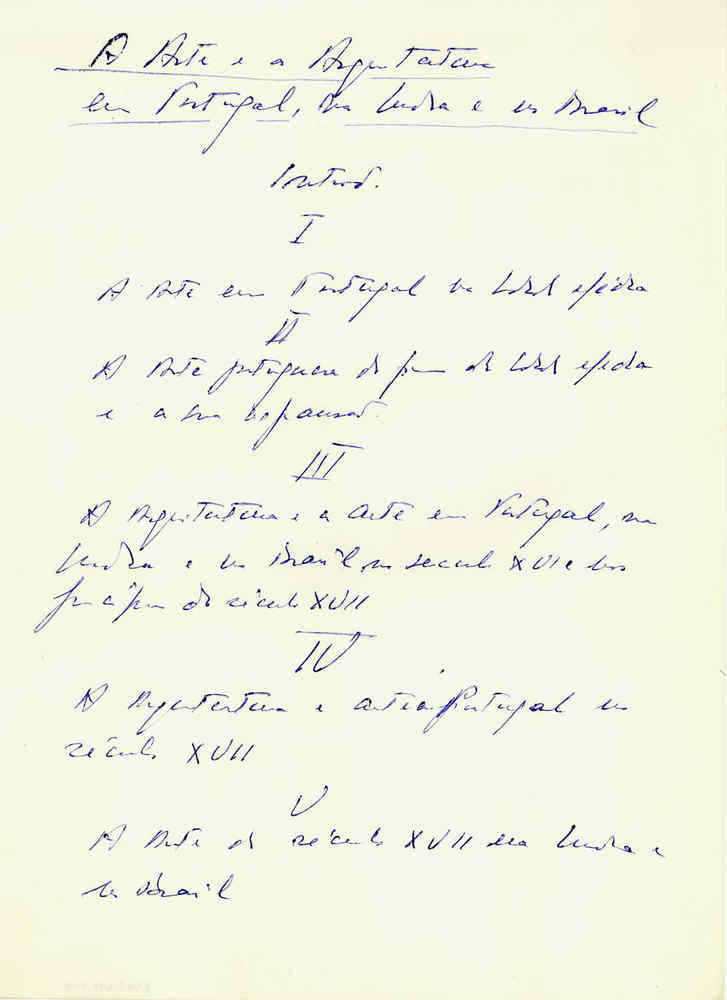 A Arte e a Arquitectura
em Portugal, na India e no Brasil
Introd.
I
A Arte em Portugal na Idade Média
II
A Arte portuguesa do fim da Idade Média
e a sua expansão.
III
A Arquitectura e a arte em Portugal, na
India e no Brasil no seculo XVI e nos
princípios do século XVII
IV
A Arquitectura e arte em Portugal no
século XVII
V
A Arte do século XVII na India e
no Brasil